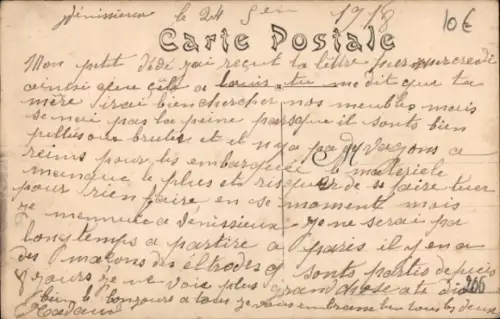 Vénissieux le 24 Jer 1918
10€
Carte Postale
Mon petit dédé j'ai reçut ta lettre mercredi
ainsi que celà a louis tu me dit que ta
mère irai bien chercher nos meubles mais
se nai pas la peine parsque il sonts bien
pillés ou brulés et il n'y a pa de vagons a
reims pour les embarquée le materiele
manque le plus et risquer de se faire tuer
pour rien faire en se moment mois
je mennuie a Venissieux je ne serai pa
longtemps a partire a paris il y en a
des maçons des sonts partis depuis
8 jours je ne vois plus grand chose a te dire
bien le bonjours a tous je vous embrasse bien tous les deux
206